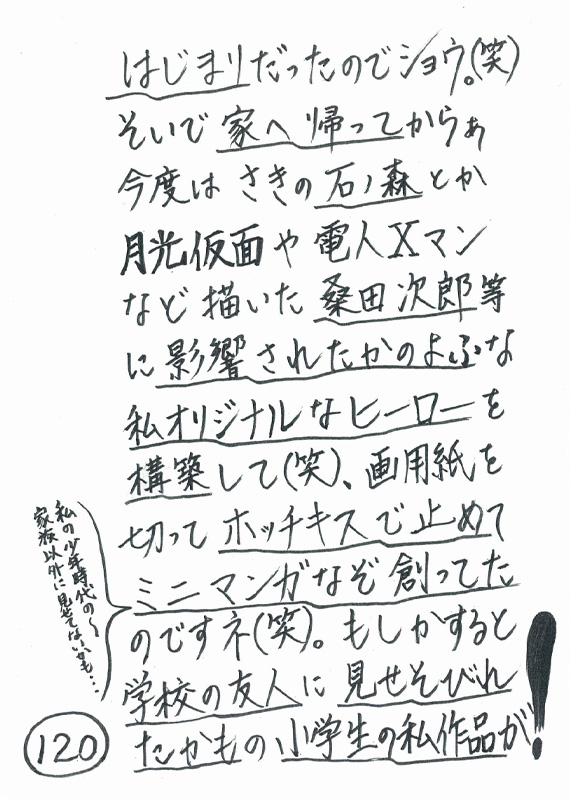 はじまりだったのでショウ。(笑)
そいで家へ帰ってからぁ
今度はさきの石ノ森とか
月光仮面や電人Xマン
など描いた桑田次郎等
に影響されたかのよぷな
私オリジナルなヒーローを
構築して(笑)、画用紙を
切ってホッチキスで止めて
ミニマンガなぞ創ってた
のですネ(笑)。もしかすると
学校の友人に見せそびれ
たかもの小学生の私作品が!
私の少年時代の〜
家族以外に見せてないかも…
120